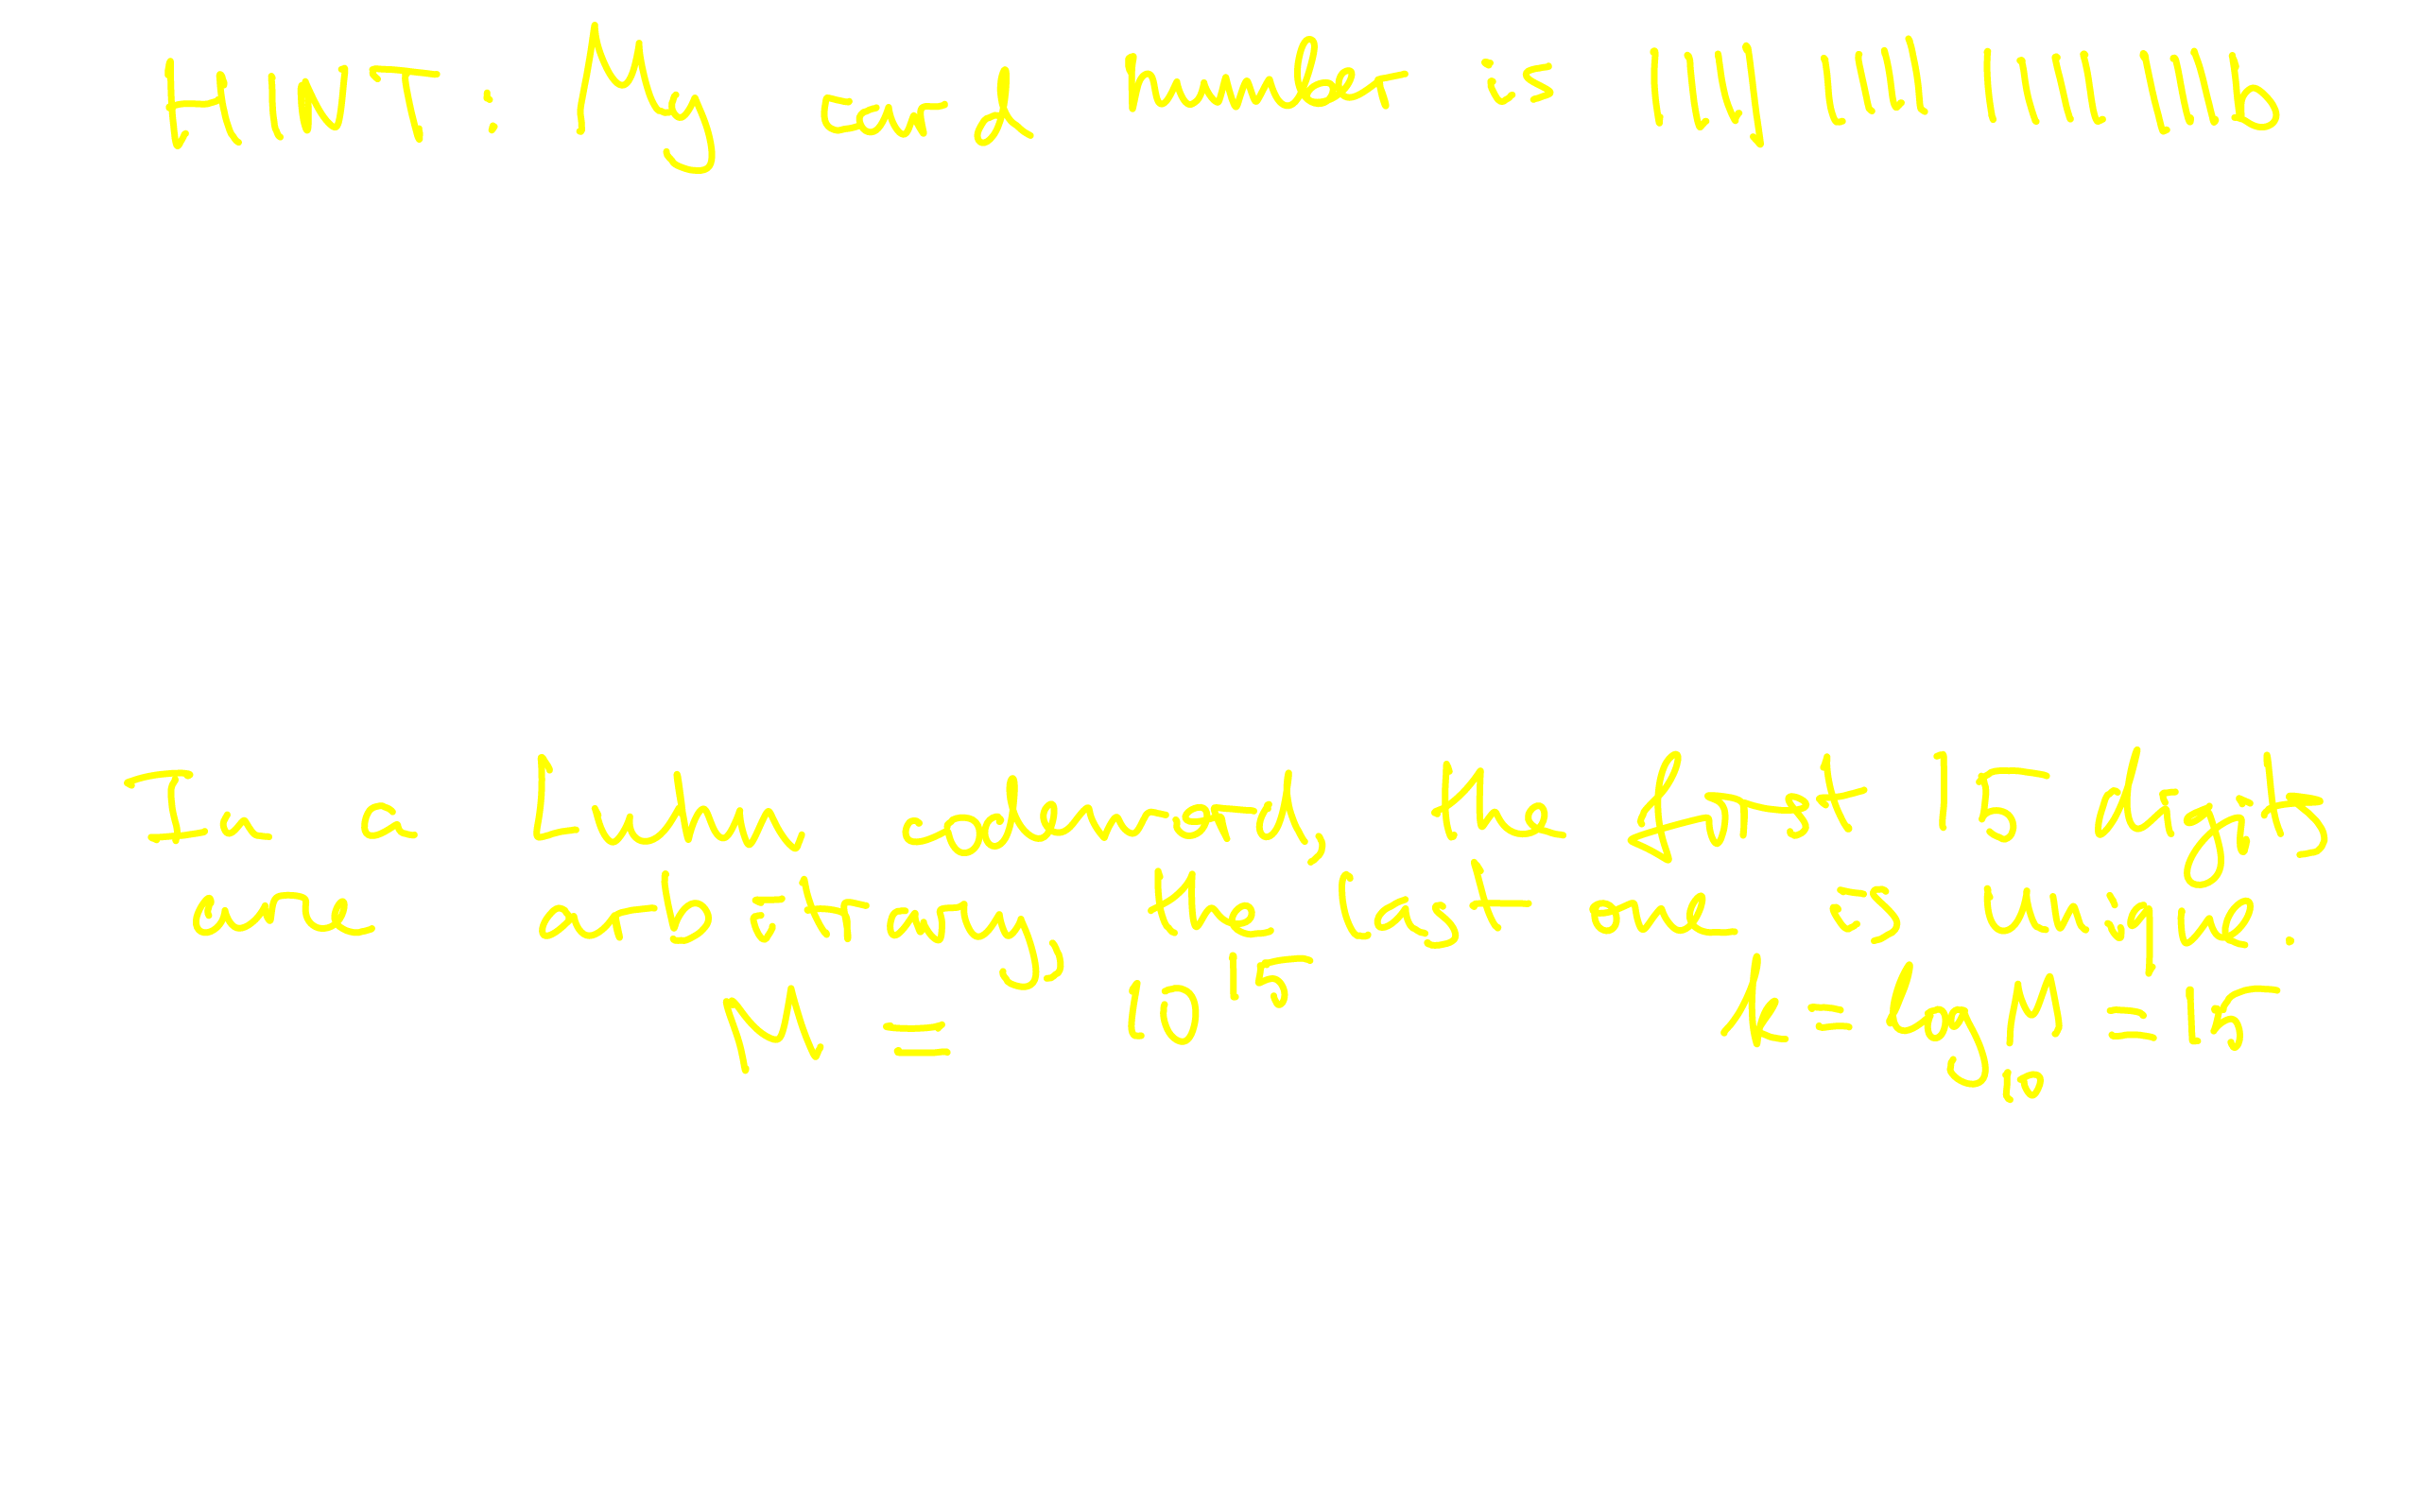 HINT: My card number is 1111 1111 1111 111b
In a Luhn codeword, the first 15 digits
are arbitrary, the last one is unique.
M = 10^15 k = log_10 M = 15